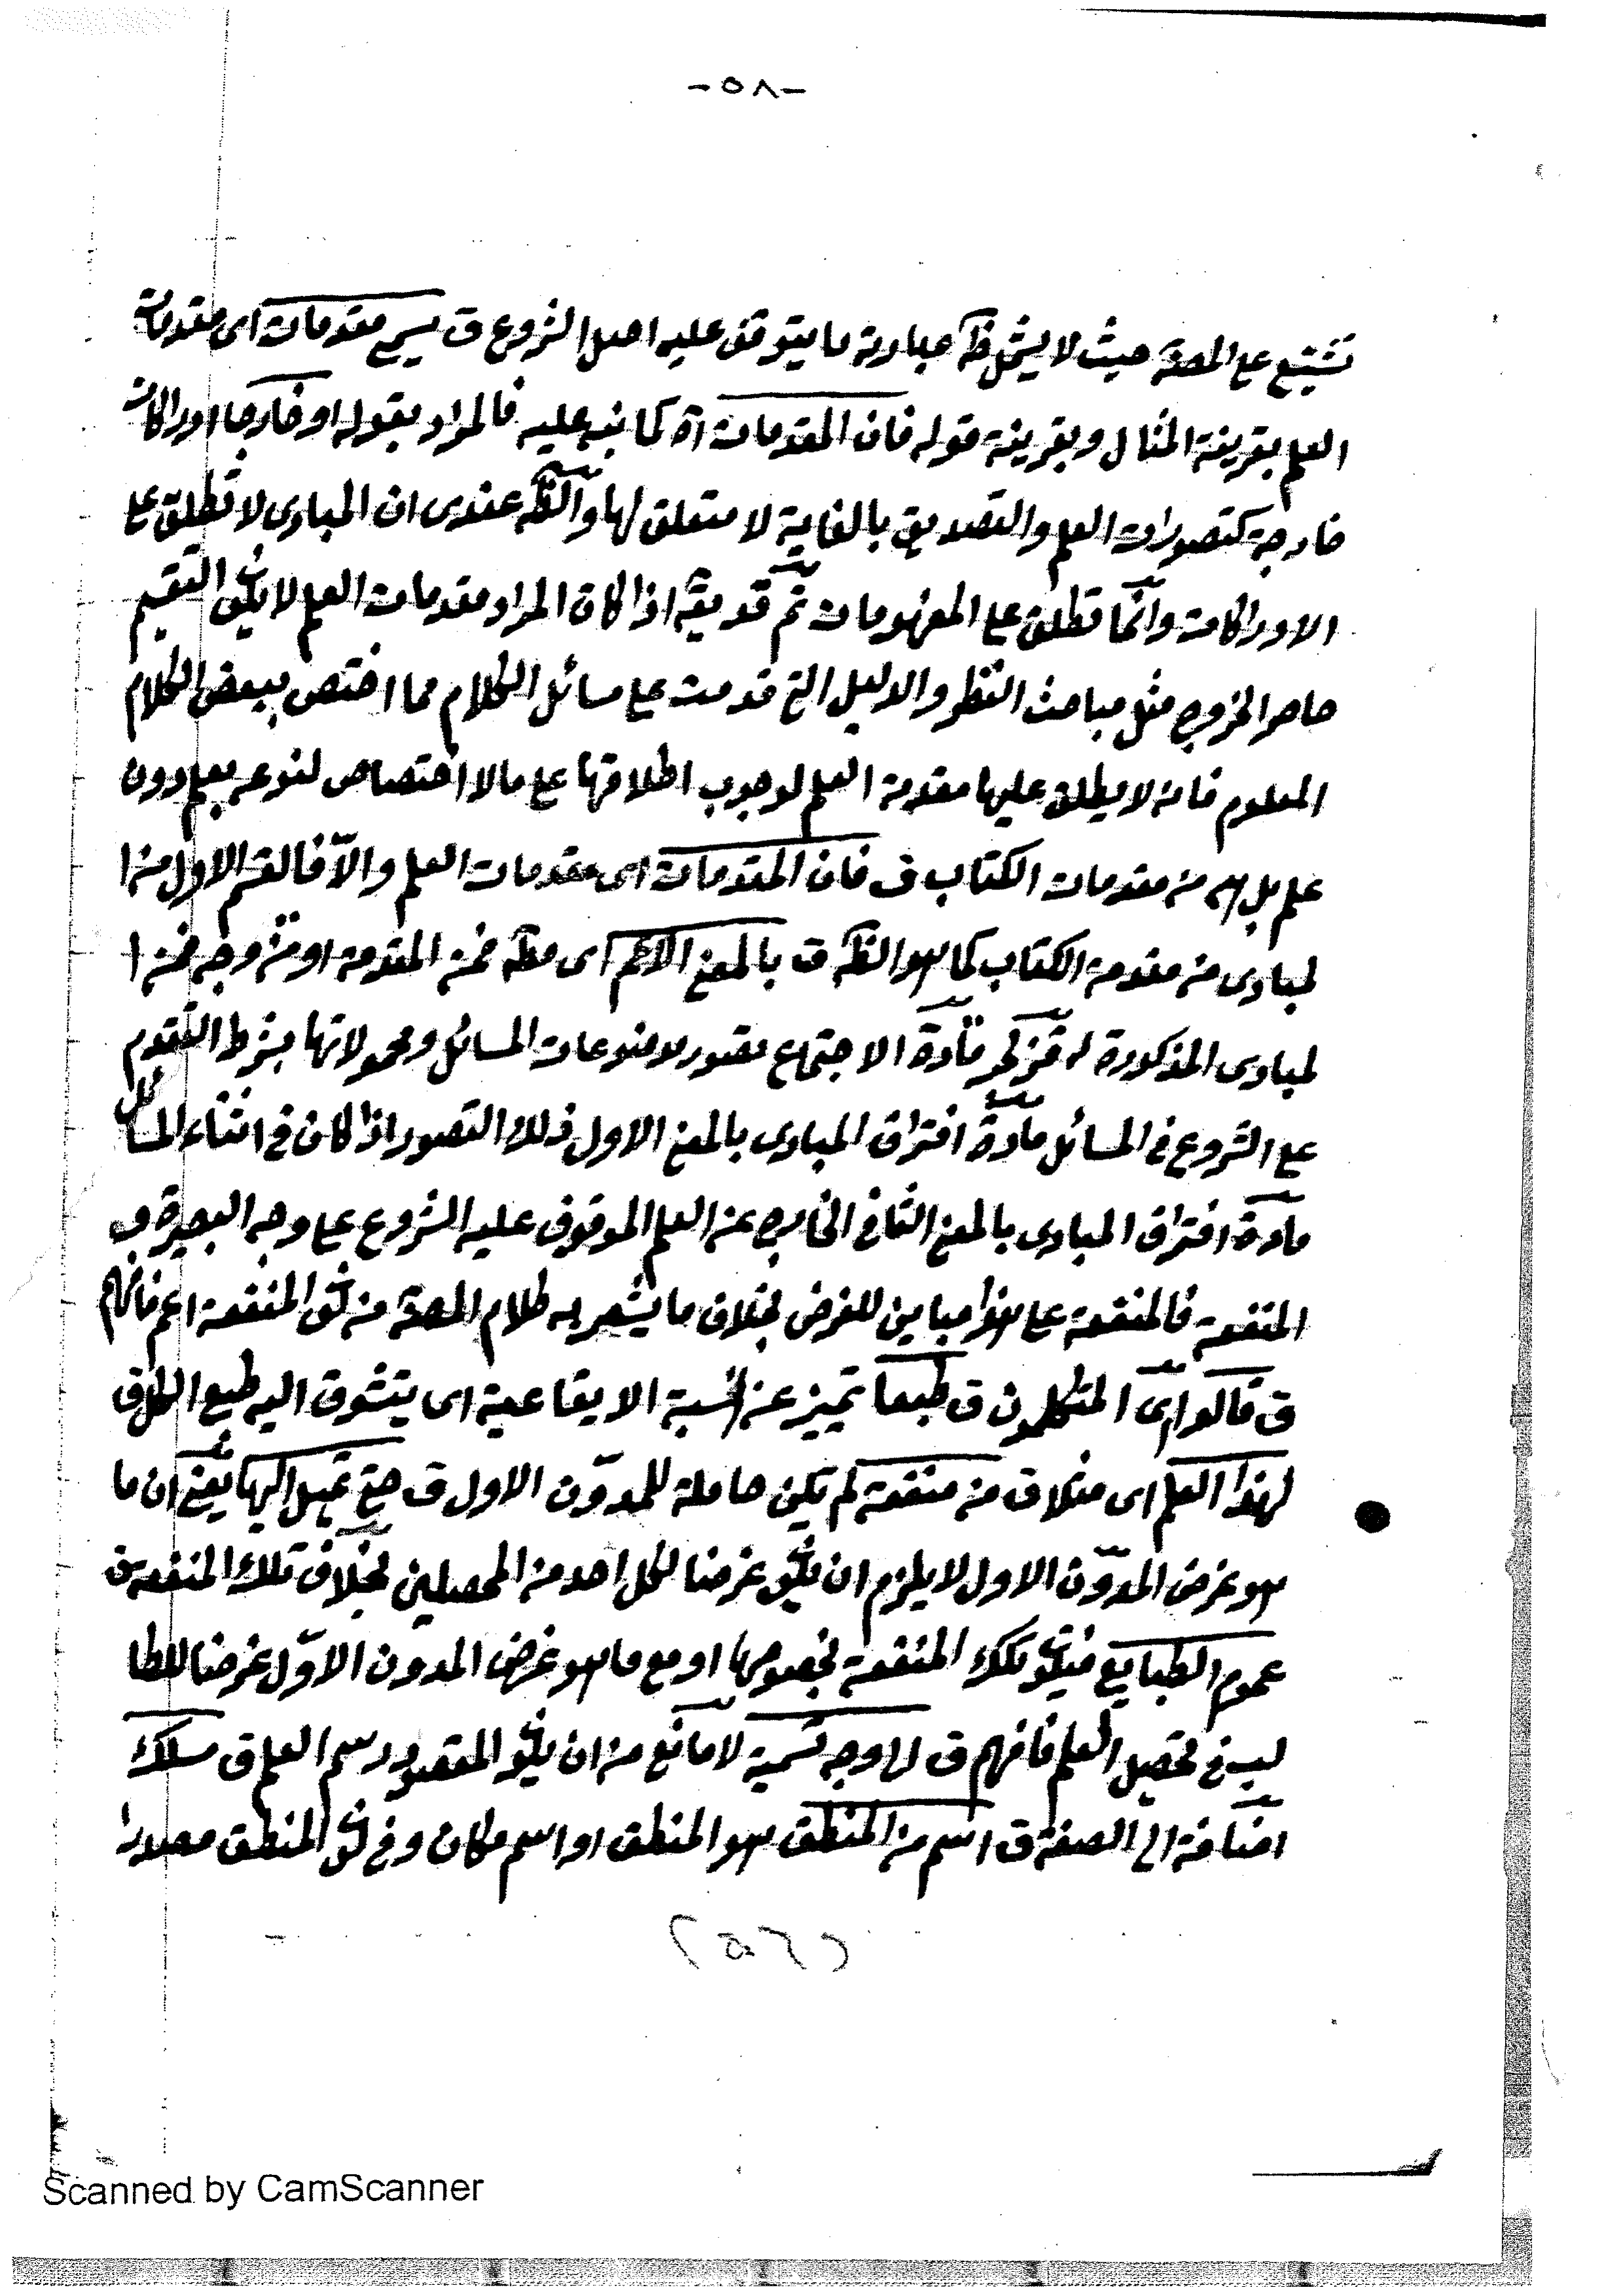 -٥٨-
تشنيع على المصنف حيث لا يشمل ظ عبارته ما يتوقف عليه اصل الشروع ق يسمى مقدمات اى مقدمات
العلم بقرينة المثال وبقرينة قوله فان المقدمات اه كما نبه عليه فالمراد بقوله او خارجا ادراكات
خارجة كتصورات العلم والتصديق بالغاية لا متعلق لها والظ عندى ان المبادى لا تطلق على
الادراكات وانما تطلق على المفهومات ثم قد يق اذا كان المراد مقدمات العلم لا يكون التقسيم
حاصرا لخروج مثل مباحث النظر والدليل التى قدمت على مسائل الكلام مما اختص ببعض الكلام
المعلوم فانه لا يطلق عليها مقدمة العلم لوجوب اطلاقها على مالا اختصاص لنوعه بعلم دون
علم بل هى من مقدمات الكتاب ق فان المقدمات اى مقدمات العلم والا فالقسم الاول من ا
لمبادى من مقدمة الكتاب كما هو الظ ق بالمعنى الاعم اى مط من المقدمة او من وجه من ا
لمبادى المذكورة مادة الاجتماع تصور موضوعات المسائل ومحمولاتها بشرط التقدم
على الشروع فى المسائل مادة افتراق المبادى بالمعنى الاول ذلك التصور اذا كان فى اثناء المسائل
مادة افتراق المبادى بالمعنى الثانى الخارج عن العلم الموقوف عليه الشروع على وجه البصيرة ق
المنفعة فالمنفعة على هذا مباين للغرض بخلاف ما يشعر به كلام المصنف من كون المنفعة اعم فافهم
ق قالوا اى المتكلمون ق طبعا تميز عن النسبة الايقاعية اى يتشوق اليه طبع الكل ق
لهذا العلم اى مثلا ق من منفعة لم يكن حاملة للمدون الاول ق حتى تميل اليها يعنى ان ما
هو غرض المدون الاول لا يلزم ان يكون غرضا لكل احد من المحصلين بخلاف تلك المنفعة ق
عموم الطبايع فيكون تلك المنفعة بخصوصها او مع ما هو غرض المدون الاول غرضا للطا
لب فى تحصيل العلم فافهم ق لا وجه تسمية لا مانع من ان يكون المقصود رسم العلم ق مسلك
اضافة الى الصفة ق اسم من المنطق هو المنطق او اسم مكان وفى كون المنطق مصدرا
Scanned by CamScanner